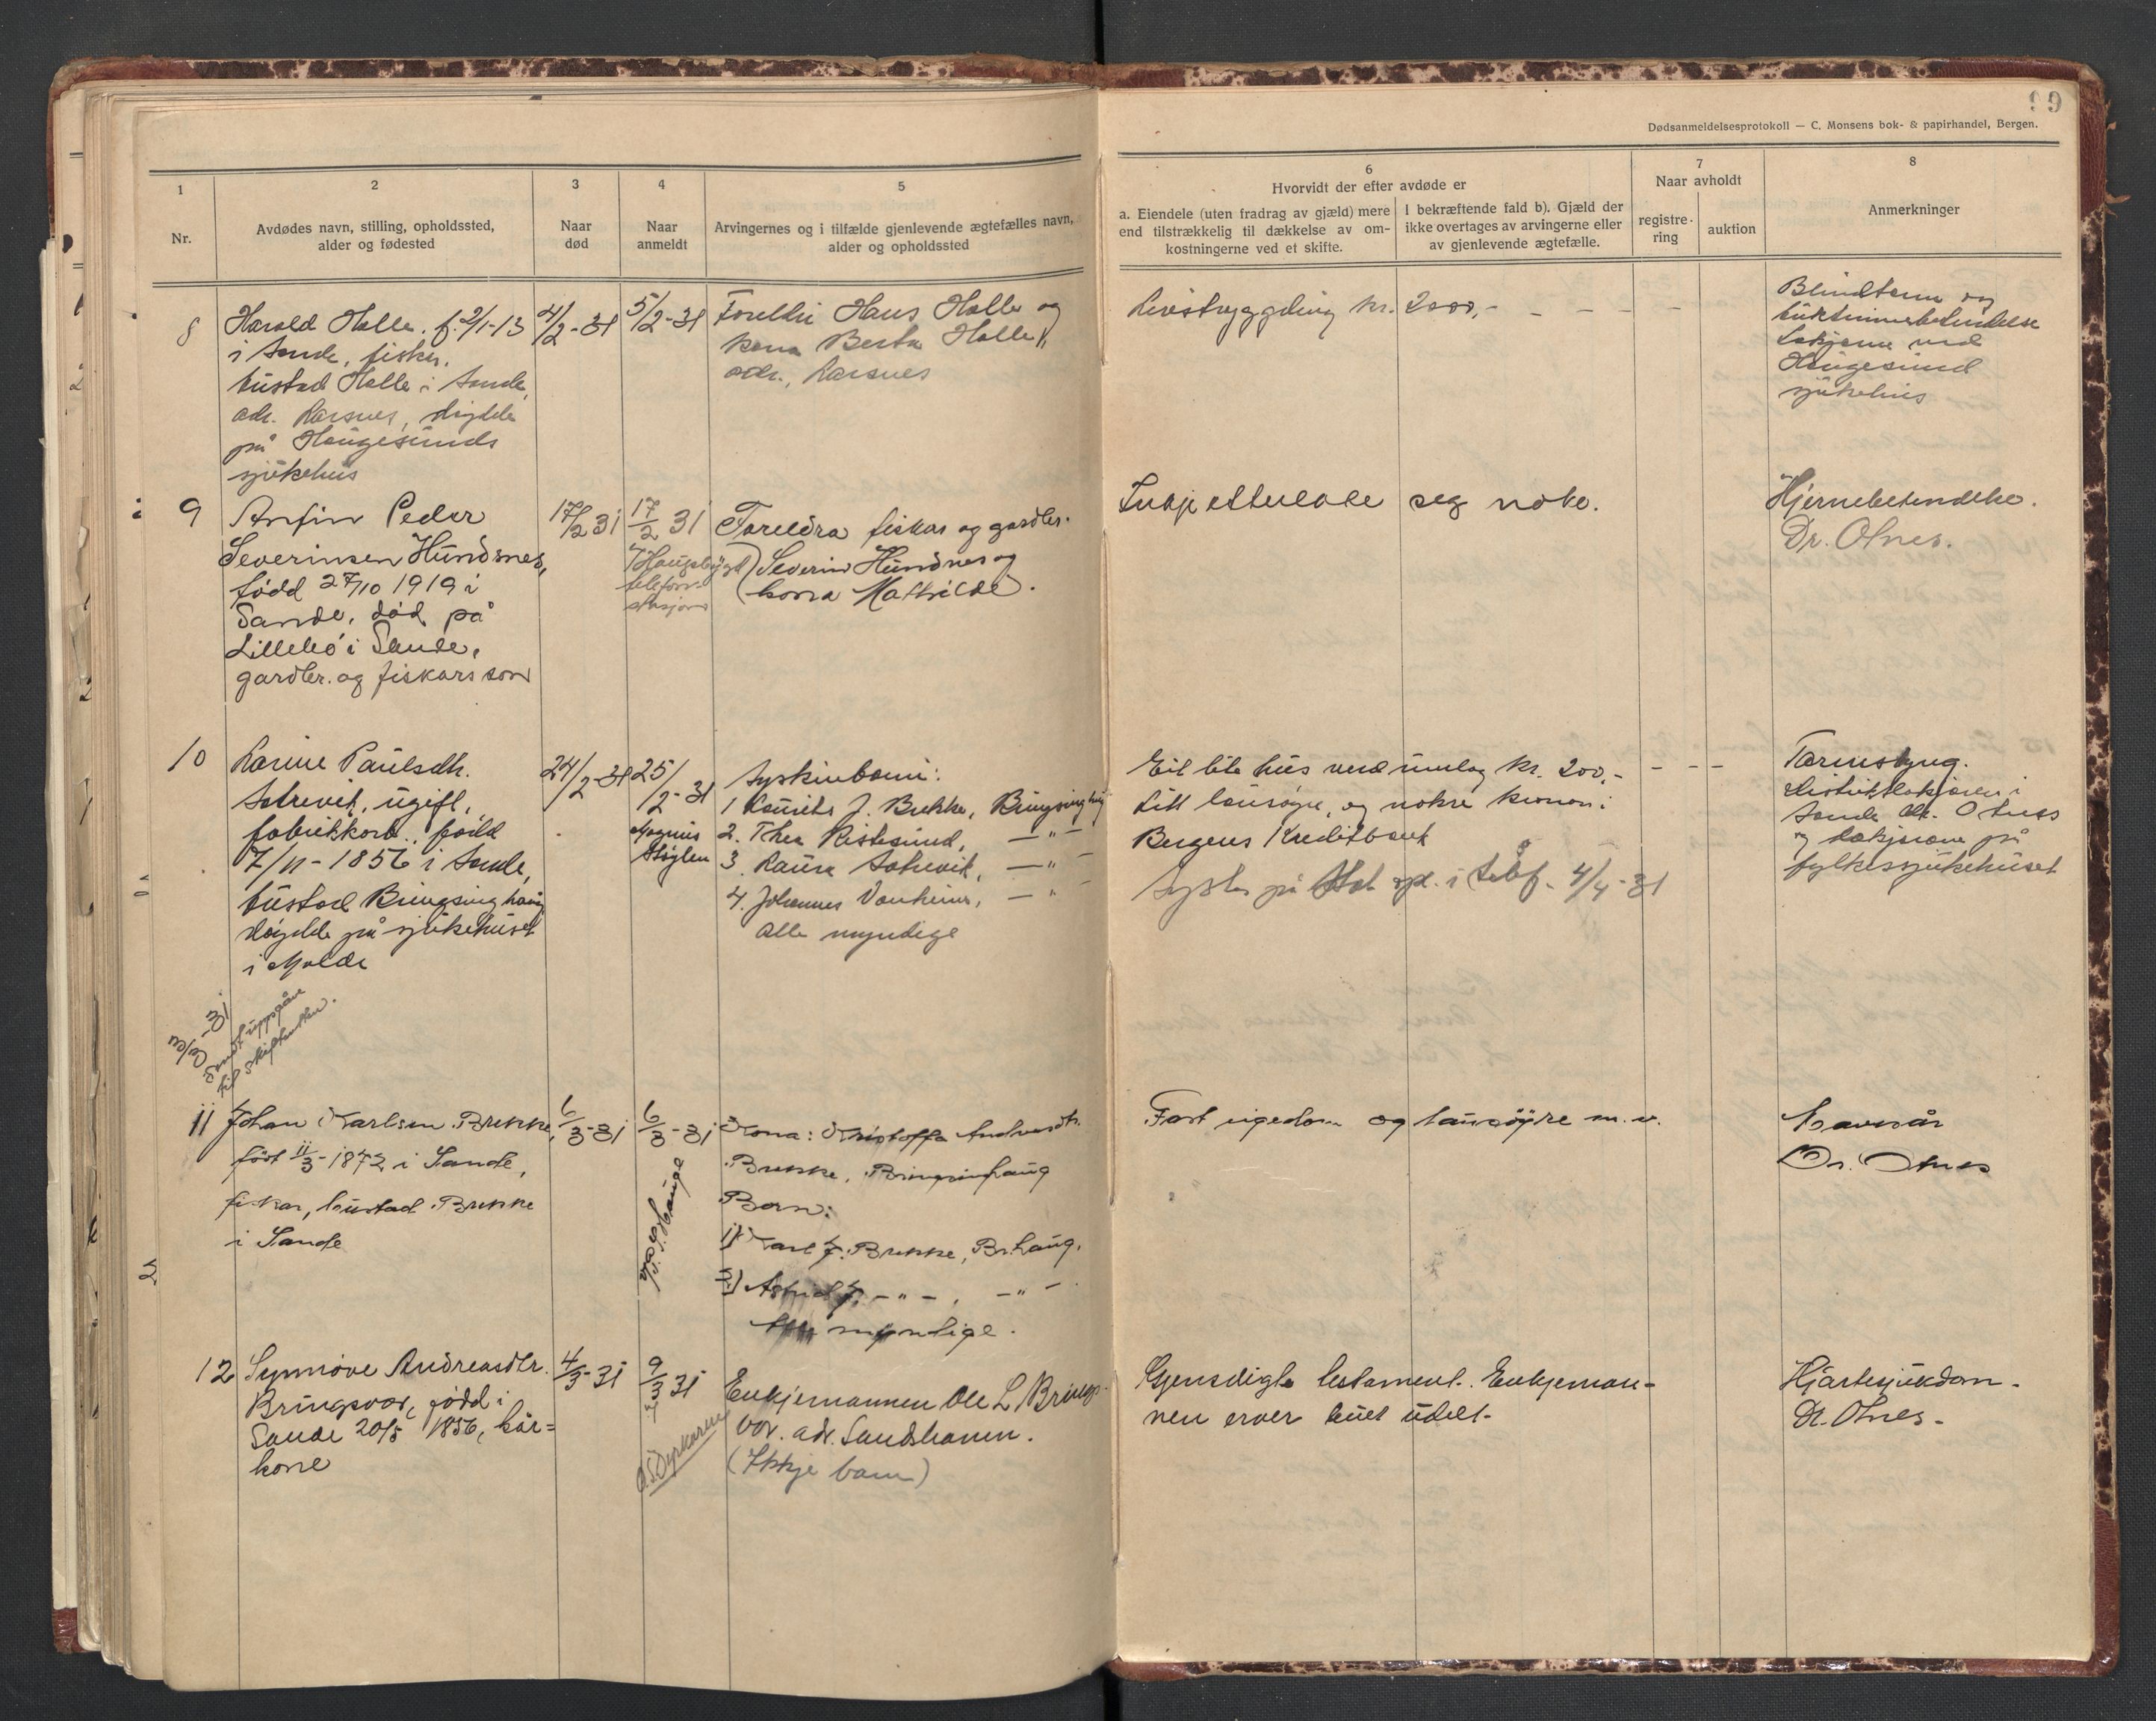 99
Dødsanmeldelsesprotokoll — C. Monsens bok- & papirhandel, Bergen.
1
Nr.
2
Avdødes navn, stilling, opholdssted,
alder og fødested
3
Naar
død
4
Naar
anmeldt
5
Arvingernes og i tilfælde gjenlevende ægtefælles navn,
alder og opholdssted
6
Hvorvidt der efter avdøde er
a. Eiendele (uten fradrag av gjæld) mere
end tilstrækkelig til dækkelse av om-
kostningerne ved et skifte.
I bekræftende fald b). Gjæld der
ikke overtages av arvingerne eller
av gjenlevende ægtefælle.
7
Naar avholdt
registre-
ring
auktion
8
Anmerkninger
8
Harald Halle. f. 2/1-13
i Sande, fisker,
bustad Halle i Sande,
adr. Larsnes, døydde
på Haugesunds
sjukehus
4/2-31
5/2-31
Foreldri Hans Halle og
kona Berta Halle,
adr., Larsnes
Livstryggding kr. 2000,- - - - - -
Blindtarm og
bukhinnebetendelse
Lækjarne ved
Haugesund
sjukehus
9
Anfin Peder
Severinsen Hundsnes,
född 27/10 1919 i
Sande, död på
Lillebö i Sande,
gardbr. og fiskars son
17/2 31
17/2 31
Haugsbygd
telefon
stasjon
Foreldra fiskar og gardbr.
(Severin Hundnes og
kona Mathilde.
Inkje etterlate seg noko.
Hjernebetendelse.
Dr. Otnes.
10
Larine Paulsdtr.
Sætrevik, ugift,
fabrikkarb., fødd
7/11-1856 i Sande,
bustad Bringsinghaug
døydde på sjukehuset
i Molde
24/2-31
25/2-31
Magnus
Støylen
Syskinborn:
1 Laurits J. Brekke, Bringsinghaug
2. Thea Ristesund, —"—
3. Laura Sætrevik, —"—
4. Johannes Vonheim, —"
Alle myndige
Eit lite hus verd umlag kr. 200,- - - -
Litt lausøyre, og nokre kronor i
Bergens Kreditbank
Tarmslyng.
Distriktslækjaren i
Sande dr. Otnes
og lækjarane på
fylkessjukehuset
3/3-31
Sendt uppgåve
til skifteretten.
11
Johan Karlsen Brekke,
födt 11/3-1872 i Sande,
fiskar, bustad Brekke
i Sande
6/3-31
6/3-31
Kona: Kristoffa Andreasdtr.
Brekke, Bringsinghaug
Born:
1) Karl J. Brekke, Br.haug,
2) Astrid J. —"—, —"—
Alle myndige.
Fast eigedom og lausöyre m. v.
Dr. Otnes
12
Synnöve Andreasdtr.
Bringsvor, född i
Sande 20/5 1856, kår=
kone
4/3-31
9/3 31
Enkjemannen Ole L Brings-
vor. adr. Sandshamn.
(Ikkje barn)
Gjensidigt testament. Enkjeman-
nen erver buet udelt.
Hjartesjukdom.
Dr. Otnes.